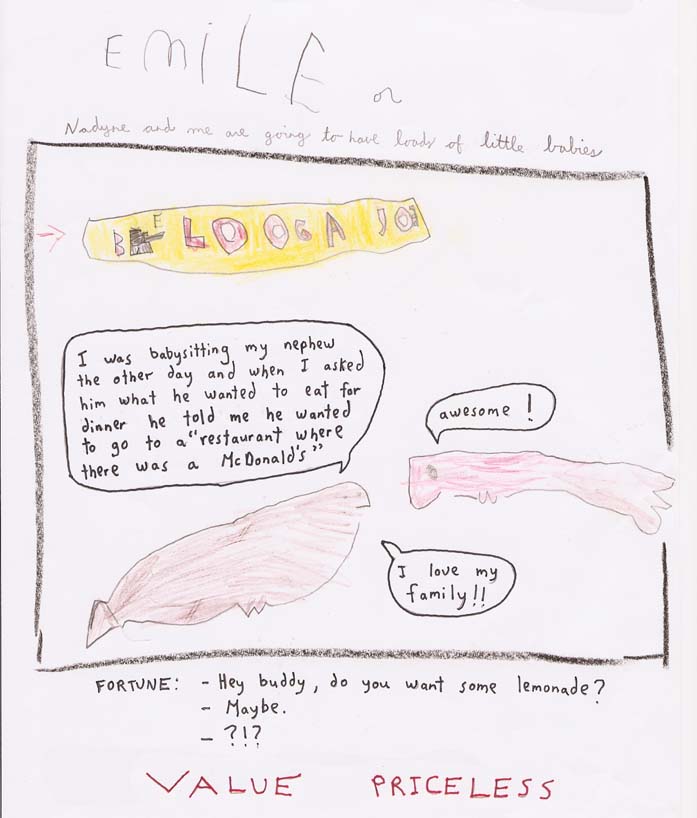 EMILE or
Nadyne and me are going to have loads of little babies
BELOOGA JOE
I was babysitting my nephew
the other day and when I asked
him what he wanted to eat for
dinner he told me he wanted
to go to a "restaurant where
there was a McDonald's"
awesome !
I love my
family!!
FORTUNE: - Hey buddy, do you want some lemonade?
- Maybe.
- ?!?
VALUE PRICELESS